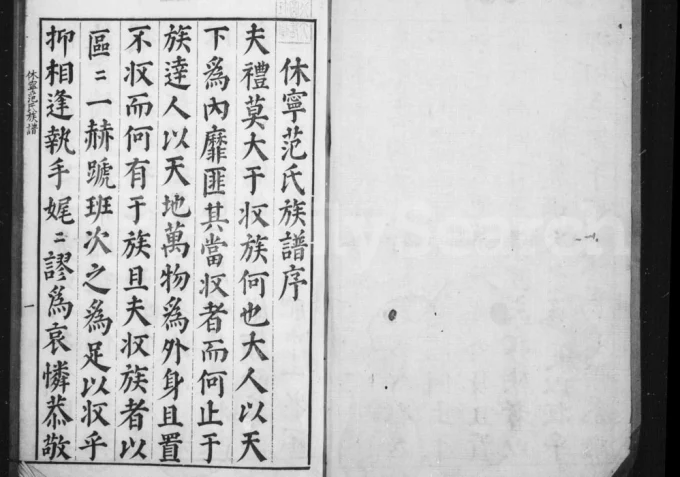 休寧范氏族譜序
夫禮莫大于収族何也大人以天
下爲內靡匪其當収者而何止于
族達人以天地萬物爲外身且置
不収而何有于族且夫収族者以
區〻一赫蹏班次之爲足以収乎
抑相逢執手娓〻謬爲哀憐恭敬
休寧范氏族譜
一